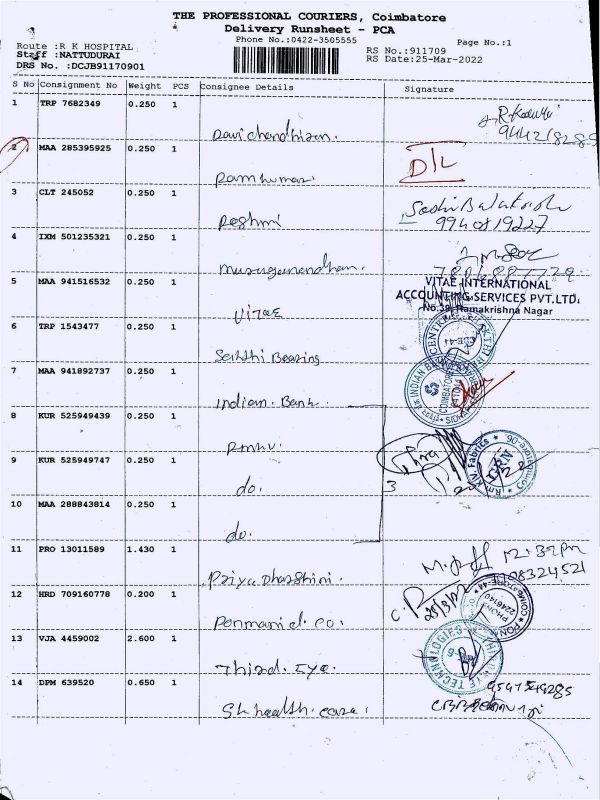 THE PROFESSIONAL COURIERS, Coimbatore
Delivery Runsheet - PCA
Phone No.:0422-3505555
Page No.:1
Route :R K HOSPITAL
RS No.:911709
Staff :NATTUDURAI
RS Date:25-Mar-2022
DRS No. :DCJB91170901
S No Consignment No Weight PCS Consignee Details Signature
1 TRP 7682349 0.250 1
Ravichandhiran.
2 MAA 285395925 0.250 1
D/L
Ramkumar.
3 CLT 245052 0.250 1
Reshmi
9940819227
4 IXM 501235321 0.250 1
Muruganandham.
5 MAA 941516532 0.250 1
VITAE INTERNATIONAL
ACCOUNTING SERVICES PVT.LTD.
No.39, Ramakrishna Nagar
VITAE
6 TRP 1543477 0.250 1
Sakthi Bearing
7 MAA 941892737 0.250 1
INDIAN BANK
COIMBATORE
Indian. Bank.
8 KUR 525949439 0.250 1
9 KUR 525949747 0.250 1
3
K.V. Fabrics
do.
10 MAA 288843814 0.250 1
do.
11 PRO 13011589 1.430 1
Priya Dharshini.
12 HRD 709160778 0.200 1
PHONE
2246140
Ponmani d. co.
13 VJA 4459002 2.600 1
TECHNOLOGIES
Third. Eye.
14 DPM 639520 0.650 1
Sk health. care.